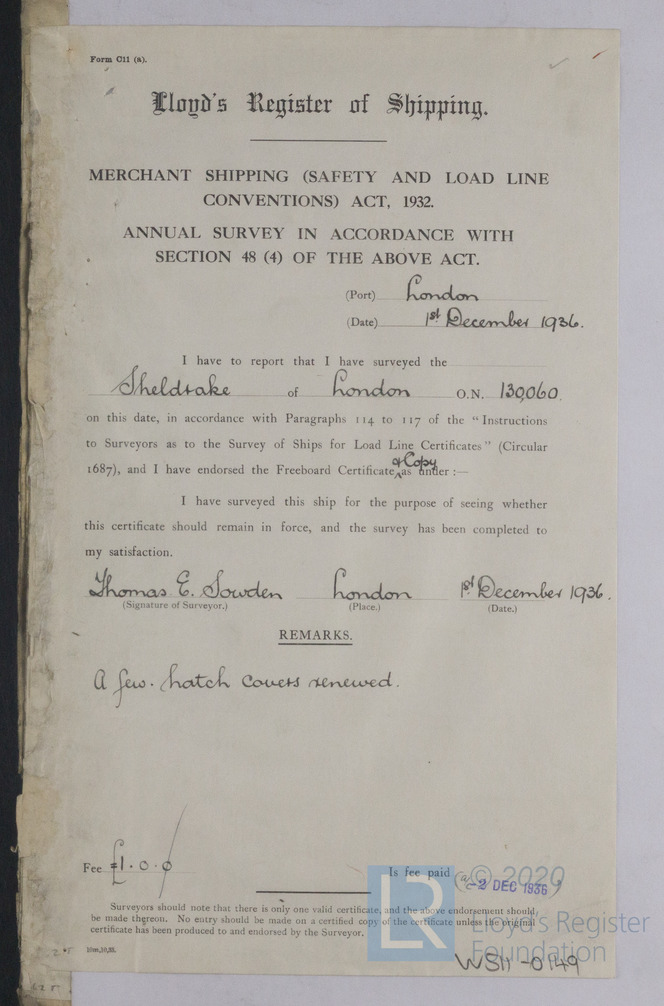 Form C11 (a).
Lloyd's Register of Shipping.
MERCHANT SHIPPING (SAFETY AND LOAD LINE
CONVENTIONS) ACT, 1932.
ANNUAL SURVEY IN ACCORDANCE WITH
SECTION 48 (4) OF THE ABOVE ACT.
(Port) London
(Date) 1st December 1936.
I have to report that I have surveyed the
Sheldrake of London O.N. 130,060.
on this date, in accordance with Paragraphs 114 to 117 of the "Instructions
to Surveyors as to the Survey of Ships for Load Line Certificates" (Circular
& Copy
1687), and I have endorsed the Freeboard Certificate as under :—
I have surveyed this ship for the purpose of seeing whether
this certificate should remain in force, and the survey has been completed to
my satisfaction.
Thomas E. Sowden London 1st December 1936.
(Signature of Surveyor.) (Place.) (Date.)
REMARKS.
A few hatch covers renewed.
Fee £1.0.0
Is fee paid
-2 DEC 1936
© 2020
Surveyors should note that there is only one valid certificate, and the above endorsement should
be made thereon. No entry should be made on a certified copy of the certificate unless the original
certificate has been produced to and endorsed by the Surveyor.
LR
Lloyd's Register
Foundation
WSH-0149